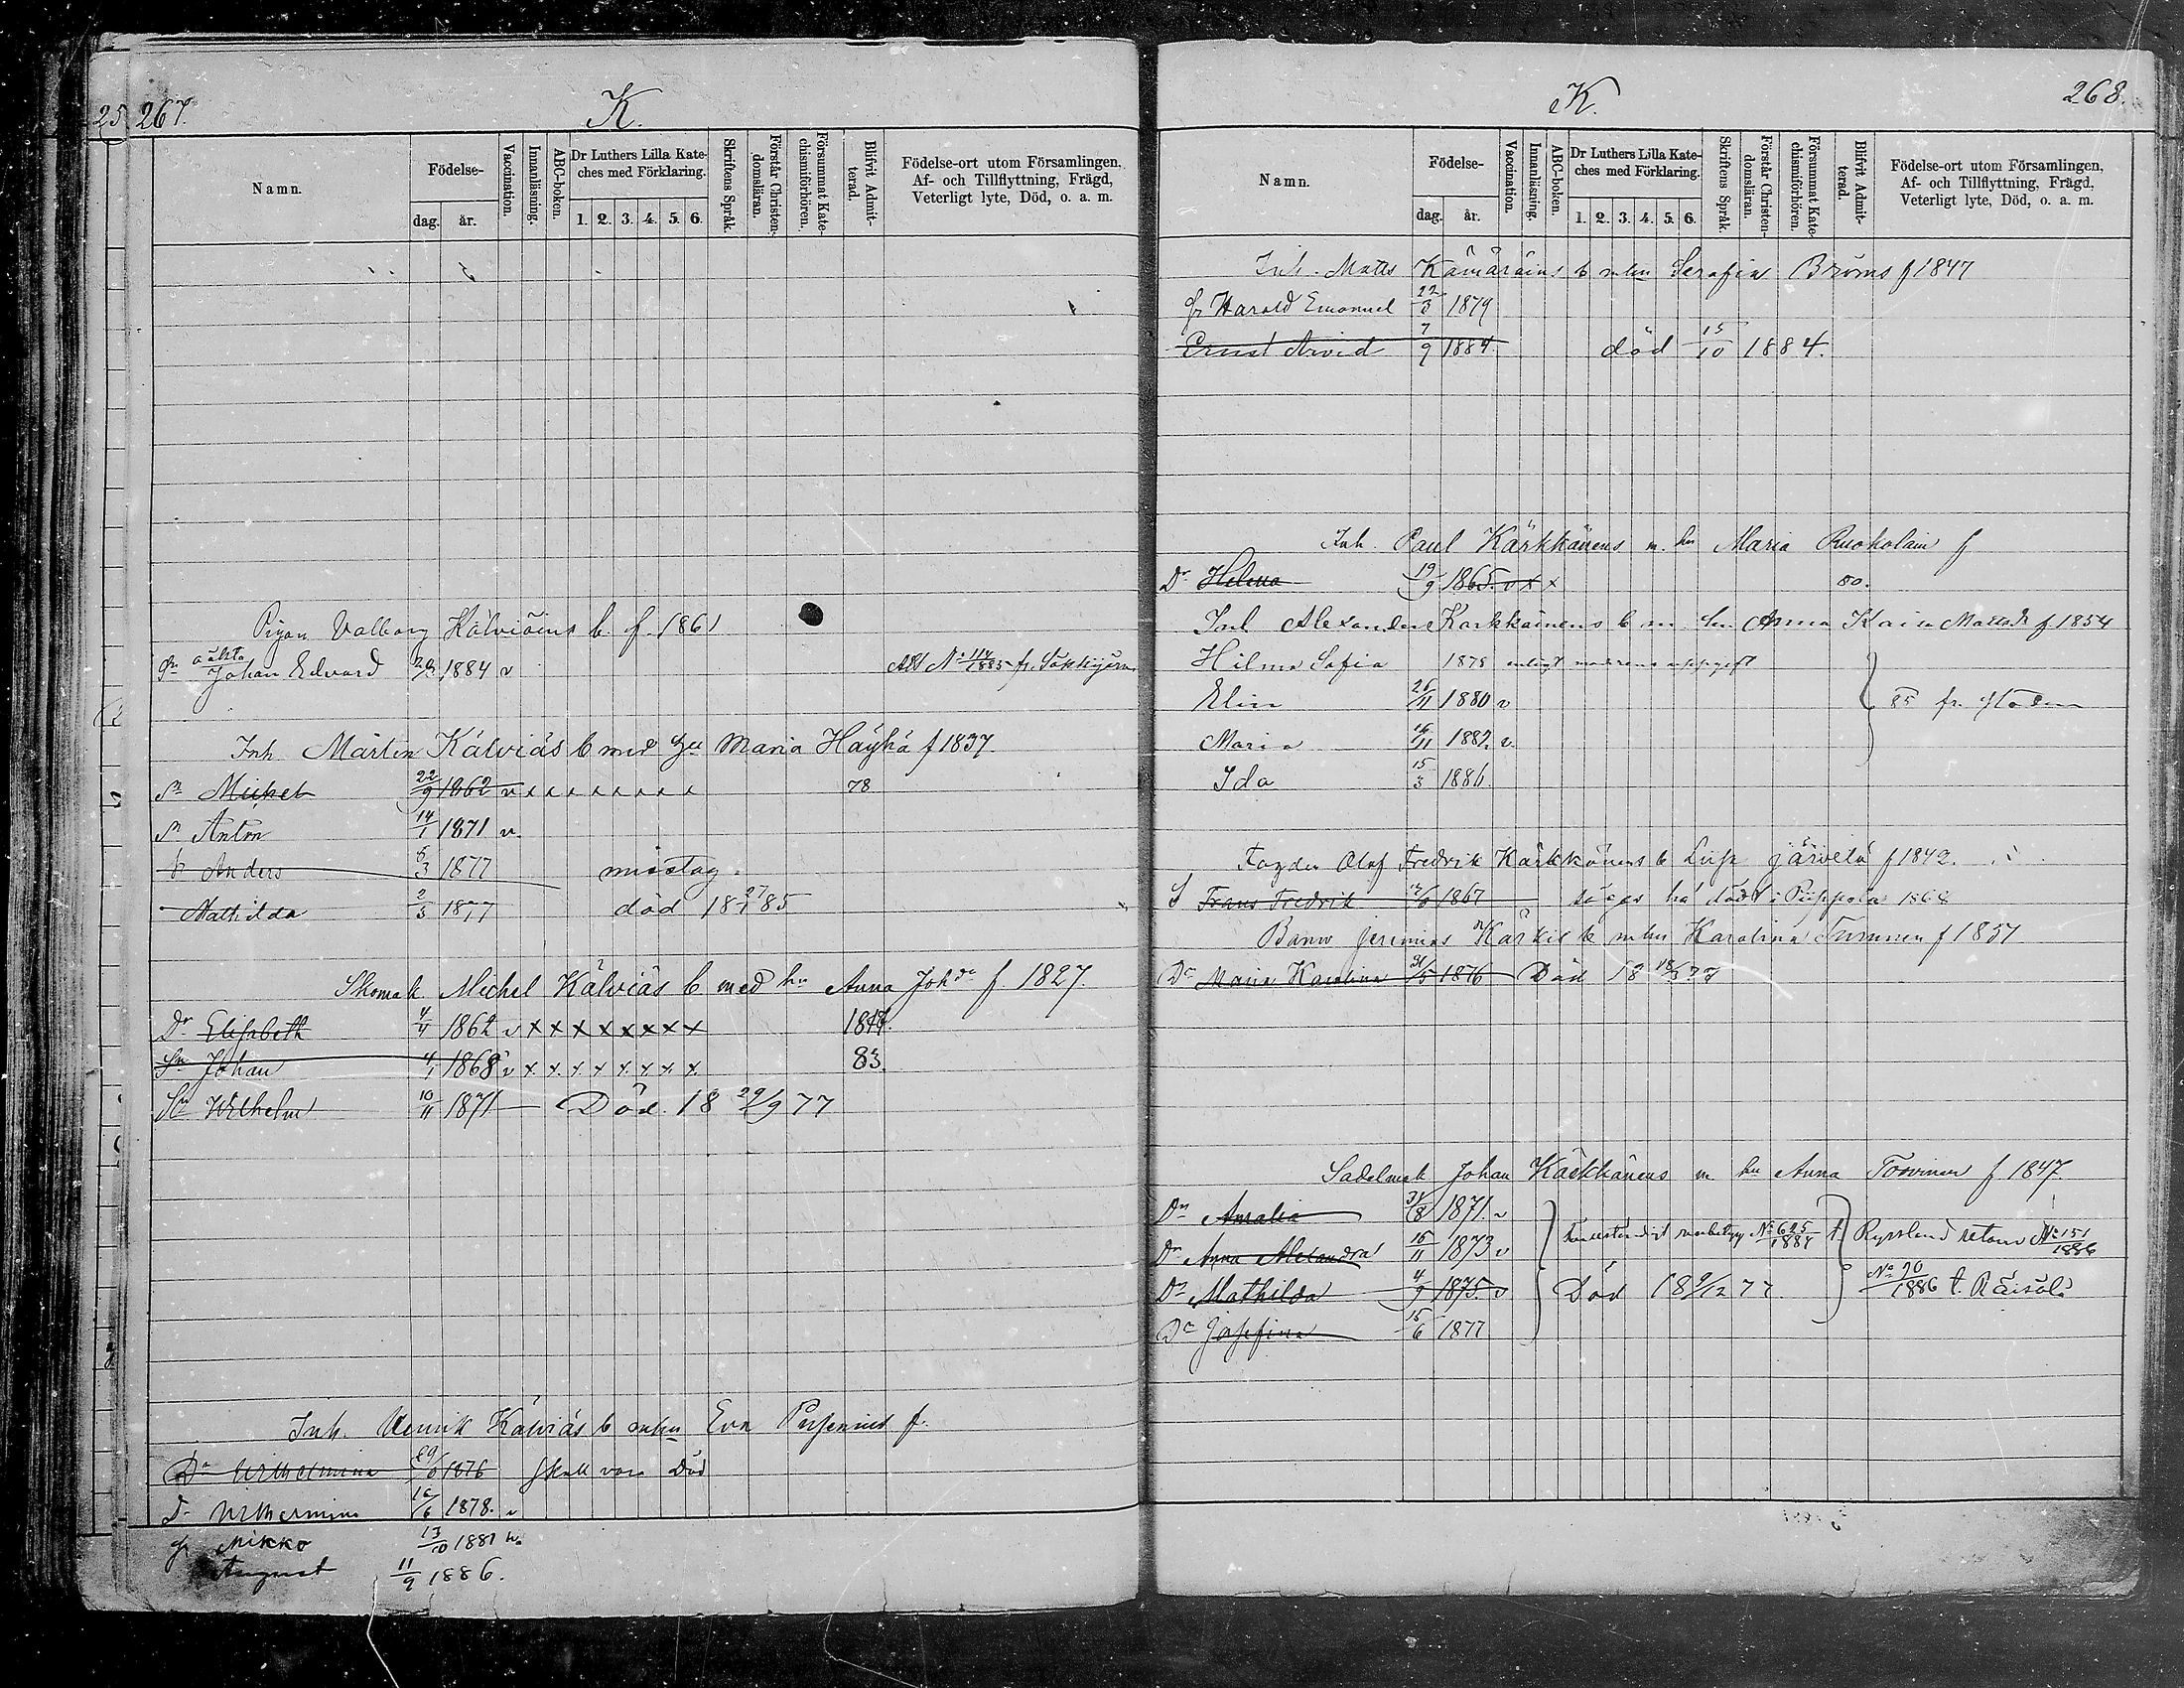 25 267.
K.
Namn.
Födelse-
dag. år.
Vaccination.
Innanläsning.
ABC-boken.
Dr Luthers Lilla Kate-
ches med Förklaring.
1. 2. 3. 4. 5. 6.
Skriftens Språk.
Förstår Christen-
domsläran.
Försummat Kate-
chismiförhören.
Blifvit Admit-
terad.
Födelse-ort utom Församlingen,
Af- och Tillflyttning, Frägd,
Veterligt lyte, Död, o. a. m.
Pigan Valborg Kälviäins b. f. 1861
Johan Edvard 1884 v Att N:o 114/1885 fr.
Inh. Mårten Kälviäs b med hu Maria Häyhä f 1837
Sn Michel 22/9 1862 v x x x x x x x x 78
Sn Anton 14/1 1871 v.
Anders 6/3 1877 misstag.
Mathilda 2/3 1877 död 18 27/1 85
Skomak. Michel Kälviäs b med hu Anna Johdr f. 1827.
Dr Elisabeth 4/4 1862 v x x x x x x x x 1878.
Sn Johan 4/1 1868 v x x x x x x x x 83.
Sn Wilhelm 10/11 1871 Död 18 29/9 77
Inh. Henrik Kälviäs b m hu Eva f.
Dr Wilhelmina 1876 skall vara död
D. Wilhermina 16/6 1878. v
Mikko 13/10 1881
August 11/9 1886.
K.
268.
Namn.
Födelse-
dag. år.
Vaccination.
Innanläsning.
ABC-boken.
Dr Luthers Lilla Kate-
ches med Förklaring.
1. 2. 3. 4. 5. 6.
Skriftens Språk.
Förstår Christen-
domsläran.
Försummat Kate-
chismiförhören.
Blifvit Admit-
terad.
Födelse-ort utom Församlingen,
Af- och Tillflyttning, Frägd,
Veterligt lyte, Död, o. a. m.
Inh. Matts Kämäräins b m hu Serafia Broms f 1847
Harald Emanuel 22/3 1879
Ernst Arvid 7/9 1884. död 15/10 1884.
Inh. Paul Kärkkänens m. hu Maria Ruokolain f
Dr Helena 19/9 1865. v x x 80.
Inh Alexander Karkkainens b m hu Anna Kaisa Mattsdr f 1854
Hilma Sofia 1878 enligt modrens uppgift
Elin 26/11 1880 v 85 fr.
Maria 16/11 1882. v.
Ida 15/3 1886.
Fogden Olof Fredrik Kärkkänens b Lisa Järvelä f 1842.
S Frans Fredrik 1867 säges ha dödt i Piippola 1868
Banv Jeremias Kärkis b m hu Karolina Tuminen f 1851
Dr Maria Karolina 31/5 1876 Död 18 18/3 77
Sadelmak Johan Käckhänens m hu Anna Toovinen f 1847.
Dr Amalia 31/8 1871. v
Dr Anna Alexandra 15/11 1873 v N:o 625/1884 t. Ryssland retour N:o 151/1886
Dr Mathilda 4/9 1875. v Död 18 9/12 77. N:o 70/1886 t. Räisälä
Dr Josefina 15/6 1877